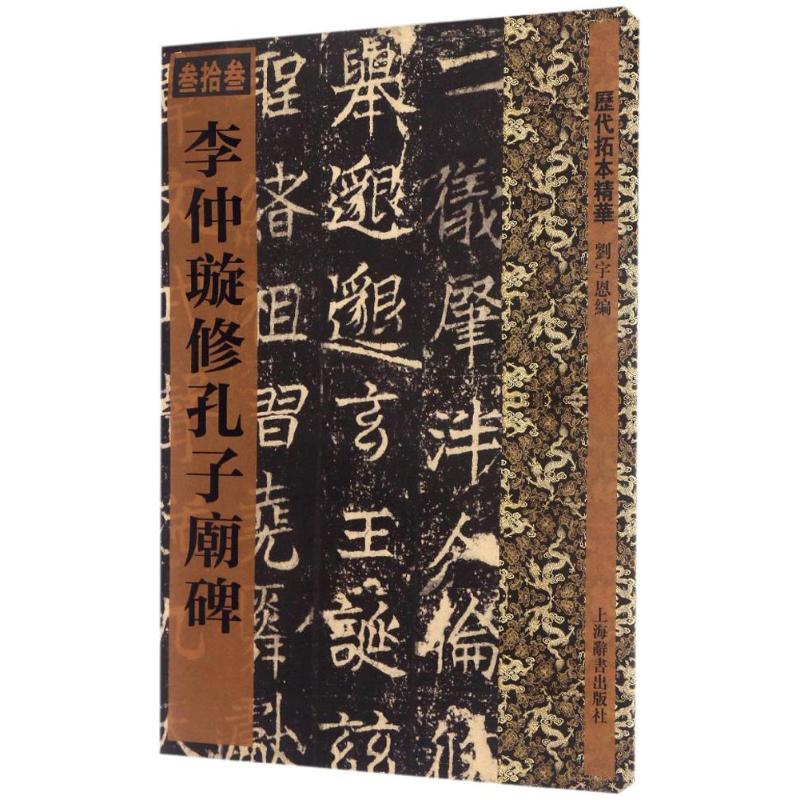 歷代拓本精華
劉宇恩編
上海辭書出版社
二儀肇泮人倫
舉邈邈玄王誕茲
習堯
叁拾叁
李仲璇修孔子廟碑